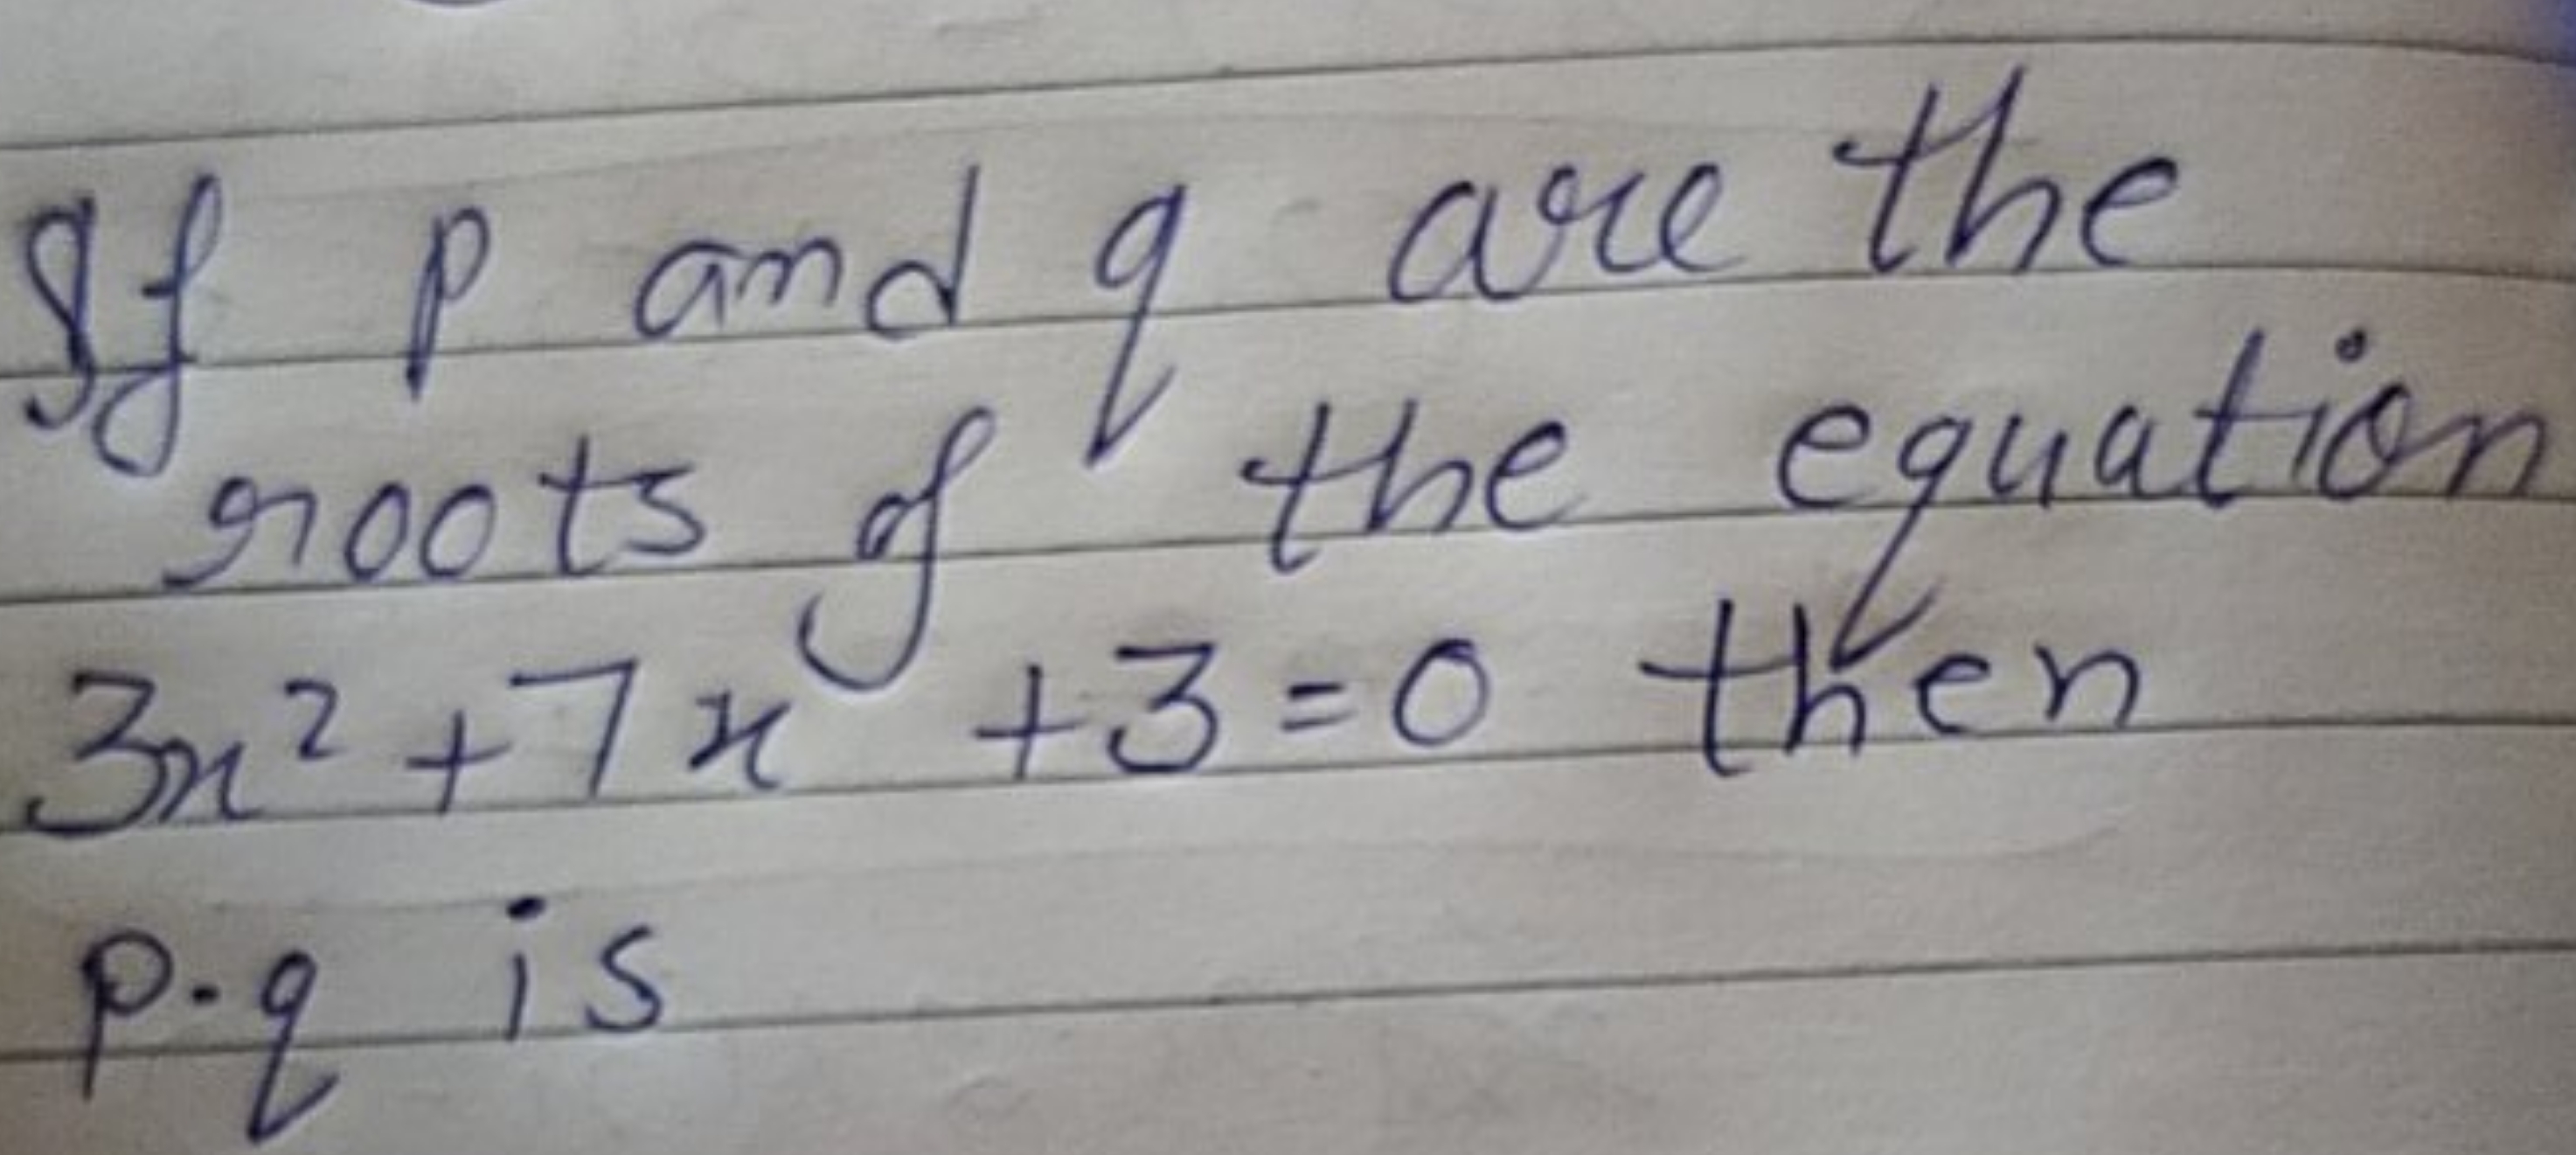 If p and q are the
roots of the equation
3x² + 7x + 3 = 0 then
p.q is